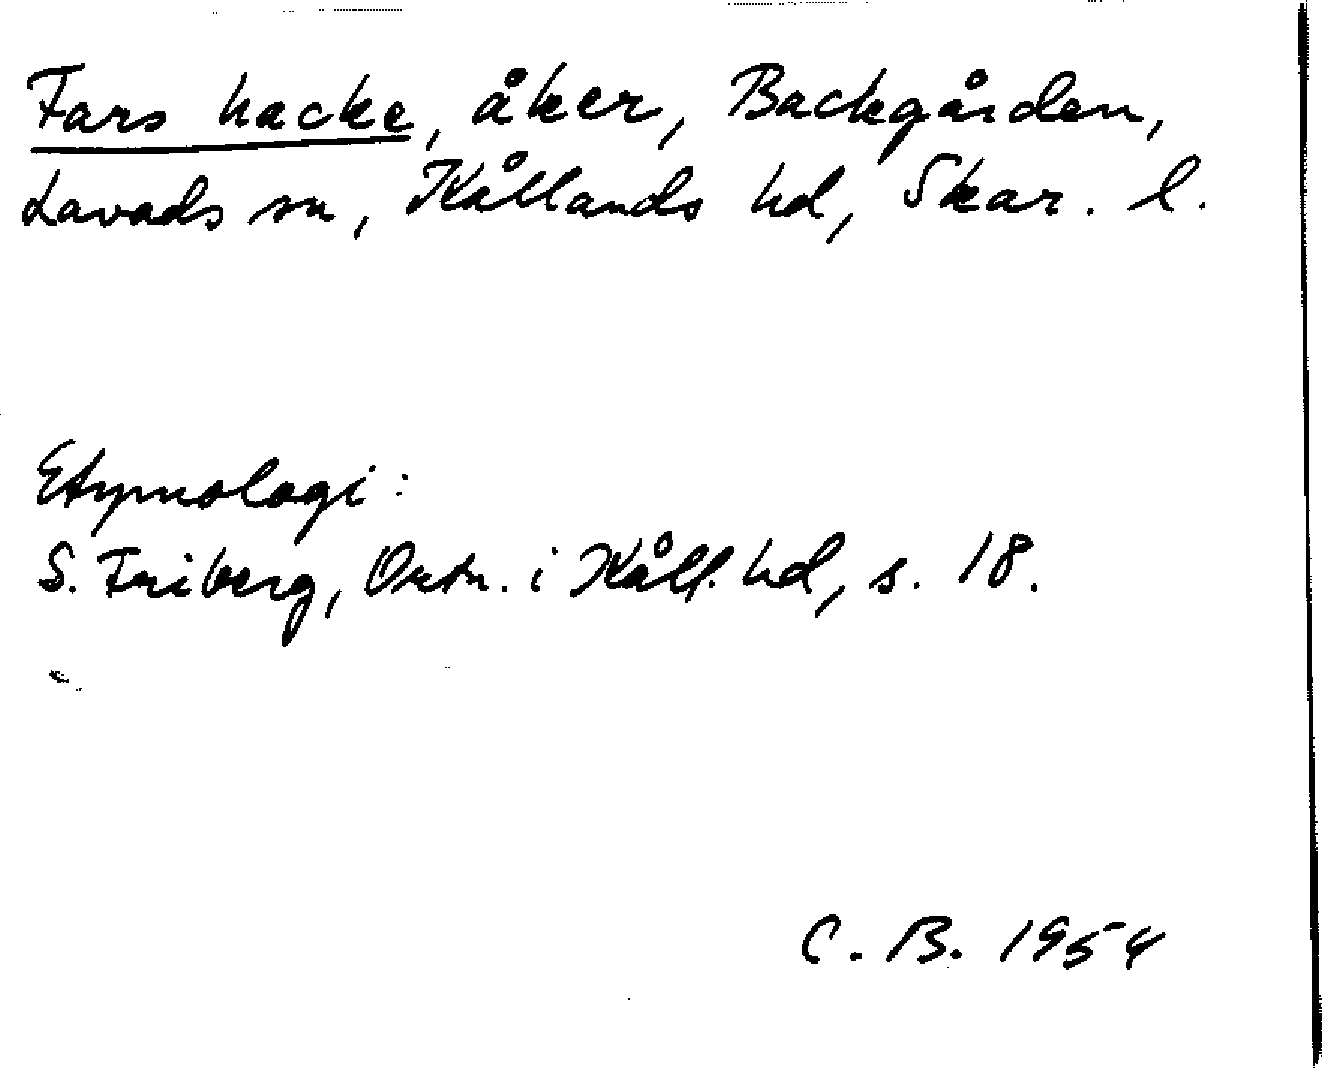 Fars hacke, åker, Backgården,
Lavads sn, Kållands hd, Skar. l.
Etymologi:
S. Friberg, Ortn. i Kåll. hd, s. 18.
C. B. 1954